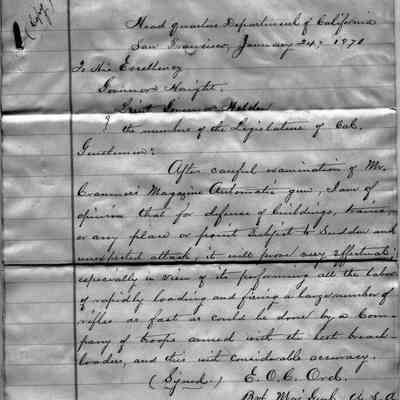 (Copy)
Head quarters Department of California
San Francisco, January 24, 1870
To His Excellency
Governor Haight.
Lieut Governor Holden
& the members of the Legislature of Cal.
Gentlemen:
After careful examination of Mr.
Cranmer's Magazine Automatic gun, I am of
opinion that for defense of buildings, trains
or any place or point subject to sudden and
unexpected attack, it will prove very effectual;
especially in view of its performing all the labor
of rapidly loading and firing a large number of
rifles as fast as could be done by a Com-
pany of troops armed with the best breach-
loaders, and this with considerable accuracy.
(Signed) E. O. C. Ord.
Bvt Maj Genl U. S. A.